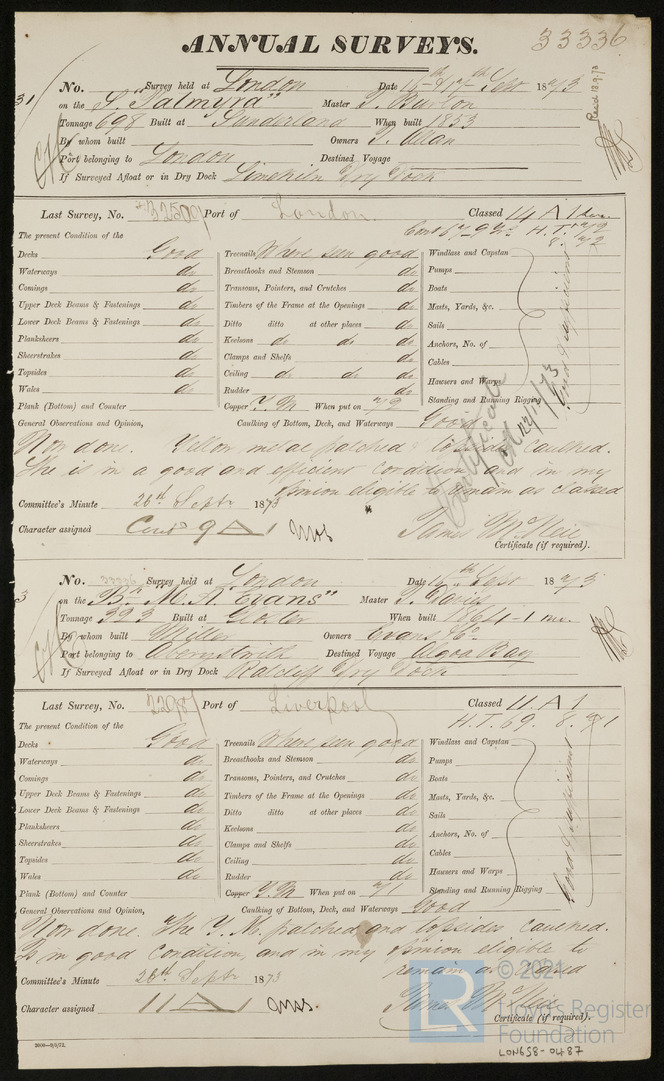 ANNUAL SURVEYS.
33336
31
No. Survey held at London Date 16th & 17th Sept 1873
Recd 18.9.73
on the S. "Palmyra" Master
Tonnage 698 Built at Sunderland When built 1853
By whom built Owners Allan
Port belonging to London Destined Voyage
If Surveyed Afloat or in Dry Dock Limekiln Dry Dock
Last Survey, No. 32509 Port of London. Classed 14 A 1
The present Condition of the Cont 67 9 H.T. 72
8. 72
Decks Good Treenails Where seen good Windlass and Capstan
Waterways do Breasthooks and Stemson do Pumps
Comings do Transoms, Pointers, and Crutches do Boats
Upper Deck Beams & Fastenings do Timbers of the Frame at the Openings do Masts, Yards, &c.
Lower Deck Beams & Fastenings do Ditto ditto at other places do Sails
Planksheers do Keelsons do do do Anchors, No. of
Sheerstrakes do Clamps and Shelfs do Cables
Topsides do Ceiling do do do Hawsers and Warps
Wales do Rudder do Standing and Running Rigging
Good & sufficient
Plank (Bottom) and Counter Copper Y.M When put on 72
General Observations and Opinion, Caulking of Bottom, Deck, and Waterways Good
Certificate
Now done. Yellow metal patched & topsides caulked.
She is in a good and efficient condition and in my
opinion eligible to remain as classed
Committee's Minute 26th Septr 1873
Character assigned Cont 9 A 1
James McNeil
Certificate (if required).
3
No. Survey held at London Date 16th Sept 1873
on the Bn "M. A. Evans" Master Davies
Tonnage 393 Built at When built 1864-1 mo.
By whom built Miller Owners Evans & Co
Port belonging to Aberystwith Destined Voyage Algoa Bay
If Surveyed Afloat or in Dry Dock Ratcliff Dry Dock
Last Survey, No. 2298 Port of Liverpool Classed 11 A 1
The present Condition of the H.T. 69. 8. 71
Decks Good Treenails Where seen good Windlass and Capstan
Waterways do Breasthooks and Stemson do Pumps
Comings do Transoms, Pointers, and Crutches do Boats
Upper Deck Beams & Fastenings do Timbers of the Frame at the Openings do Masts, Yards, &c.
Lower Deck Beams & Fastenings do Ditto ditto at other places do Sails
Planksheers do Keelsons do Anchors, No. of
Sheerstrakes do Clamps and Shelfs do Cables
Topsides do Ceiling do Hawsers and Warps
Wales do Rudder do Standing and Running Rigging
Good & sufficient
Plank (Bottom) and Counter Copper Y.M When put on 71
General Observations and Opinion, Caulking of Bottom, Deck, and Waterways Good
Now done. The Y.M. patched and topsides caulked.
Is in good condition, and in my opinion eligible to
remain as classed
Committee's Minute 26th Septr 1873
Character assigned 11 A 1
James McNeil
Certificate (if required).
© 2021
LR
Lloyd's Register
Foundation
LON658-0487